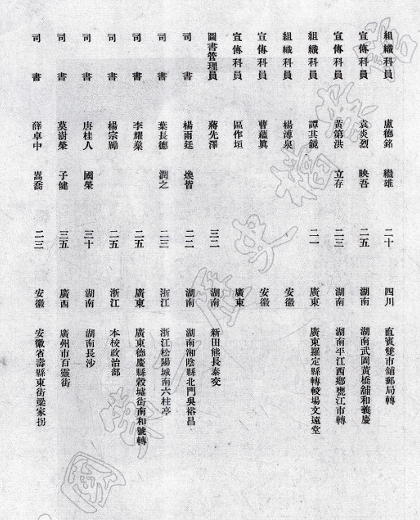 組織科員 盧德銘 繼雄 二十 四川 直賓雙市舖郵局轉
宣傳科員 袁炎烈 映吾 二五 湖南 湖南武岡黃橋舖和義慶
宣傳科員 黃第洪 立存 二三 湖南 湖南平江西鄉甕江市轉
組織科員 譚其鏡 二一 廣東 廣東羅定縣轉㯫場文遠堂
組織科員 楊溥泉 安徽
宣傳科員 曹蘊真 安徽
宣傳科員 區作垣 廣東
圖書管理員 蔣先澤 三二 湖南 新田熊長泰交
司書 楊雨廷 煥皆 二二 湖南 湖南湘陰縣北門吳裕昌
司書 葉長德 潤之 二三 浙江 浙江松陽城南六桂亭
司書 李耀燊 二五 廣東 廣東德慶縣穀墟街南和號轉
司書 楊宗勵 二五 浙江 本校政治部
司書 唐桂人 國榮 三十 湖南 湖南長沙
司書 莫澍榮 子健 三五 廣西 廣州市百靈街
司書 薛卓中 嵩喬 二三 安徽 安徽省壽縣東街梁家拐